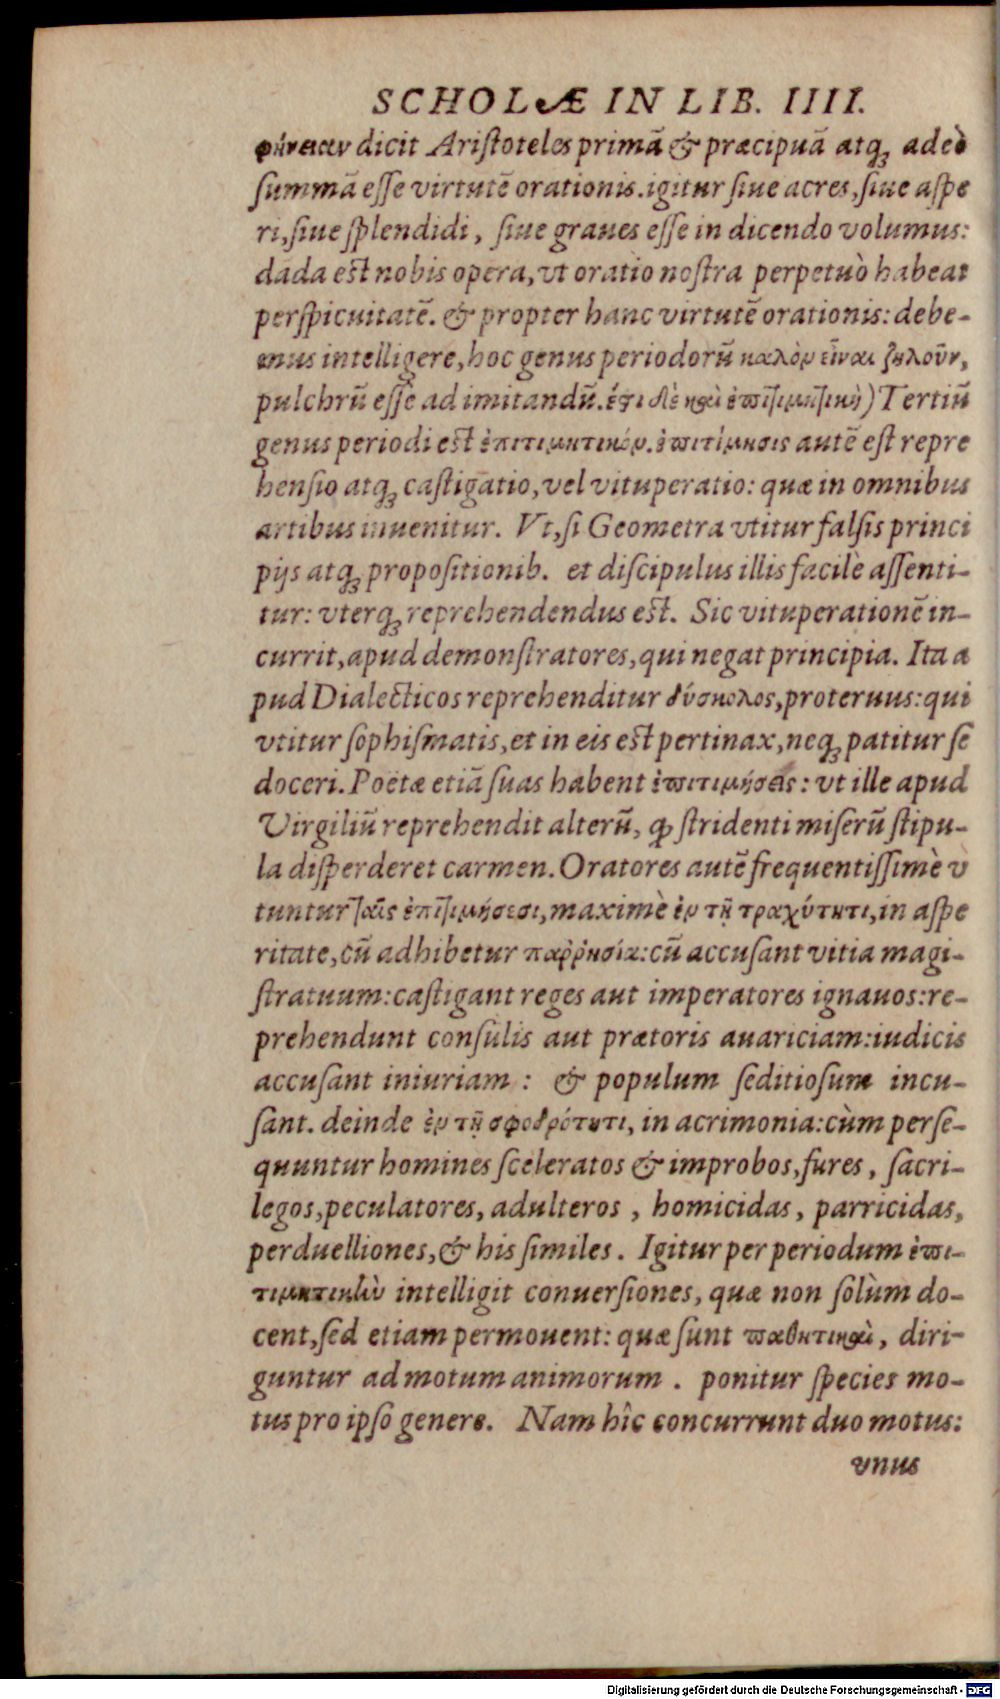 SCHOLÆ IN LIB. IIII.
φήνειαν dicit Ariſtoteles primā & præcipuā atq; adeò
ſummā eſſe virtutē orationis. igitur ſiue acres, ſiue aſpe
ri, ſiue ſplendidi, ſiue graues eſſe in dicendo volumus:
dāda est nobis opera, vt oratio noſtra perpetuò habeat
perſpicuitatē. & propter hanc virtutē orationis: debe-
mus intelligere, hoc genus periodorū καλὸν εἶναι ζηλοῦν,
pulchrū eſſe ad imitandū. ἔςι δὲ καὶ ἐπιτιμητικὴ) Tertiū
genus periodi est ἐπιτιμητικόν. ἐπιτίμησις autē eſt repre
henſio atq; caſtigatio, vel vituperatio: quæ in omnibus
artibus inuenitur. Vt, ſi Geometra vtitur falſis princi
pijs atq; propoſitionib. et diſcipulus illis facilè aſſenti-
tur: vterq; reprehendendus est. Sic vituperationē in-
currit, apud demonſtratores, qui negat principia. Ita a
pud Dialecticos reprehenditur δύσκολος, proteruus: qui
vtitur ſophiſmatis, et in eis est pertinax, neq; patitur ſe
doceri. Poëtæ etiā ſuas habent ἐπιτιμήσεις: vt ille apud
Virgiliū reprehendit alterū, ꝙ ſtridenti miſerū ſtipu-
la diſperderet carmen. Oratores autē frequentiſſimè v̀
tuntur ταῖς ἐπιτιμήσεσι, maximè ἐν τῇ τραχύτητι, in aſpe
ritate, cū adhibetur παῤῥησία: cū accuſant vitia magi-
ſtratuum: caſtigant reges aut imperatores ignauos: re-
prehendunt conſulis aut prætoris auariciam: iudicis
accuſant iniuriam : & populum ſeditioſum incu-
ſant. deinde ἐν τῇ σφοδρότητι, in acrimonia: cùm perſe-
quuntur homines ſceleratos & improbos, fures, ſacri-
legos, peculatores, adulteros, homicidas, parricidas,
perduelliones, & his ſimiles. Igitur per periodum ἐπι-
τιμητικὴν intelligit conuerſiones, quæ non ſolùm do-
cent, ſed etiam permouent: quæ ſunt παθητικαὶ, diri-
guntur ad motum animorum. ponitur ſpecies mo-
tus pro ipſo genere. Nam hîc concurrunt duo motus:
vnus
Digitalisierung gefördert durch die Deutsche Forschungsgemeinschaft - DFG